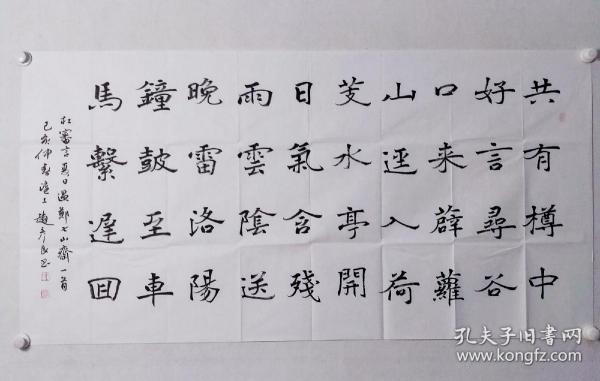 共有樽中
好言尋谷
口来薜蘿
山逕入荷
芰水亭開
日氣含殘
雨雲陰送
晚雷洛陽
鐘鼓至車
馬繫遲回
杜審言夏日過鄭七山齋一首
己亥仲春滬上趙
孔夫子旧書网
www.kongfz.com